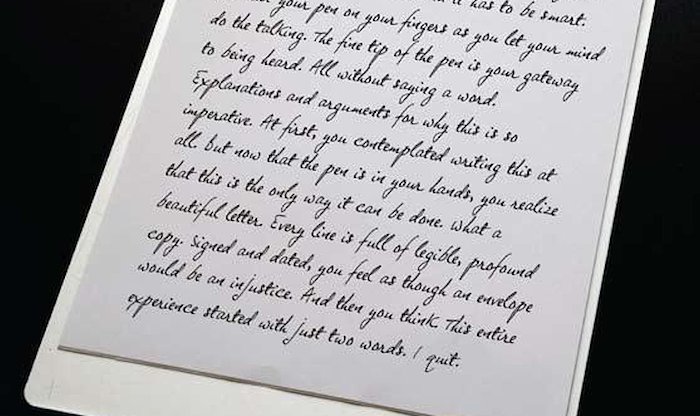 it has to be smart.
your pen on your fingers as you let your mind
do the talking. The fine tip of the pen is your gateway
to being heard. All without saying a word.
Explanations and arguments for why this is so
imperative. At first, you contemplated writing this at
all. But now that the pen is in your hands, you realize
that this is the only way it can be done. What a
beautiful letter. Every line is full of legible, profound
copy. Signed and dated, you feel as though an envelope
would be an injustice. And then you think. This entire
experience started with just two words. I quit.